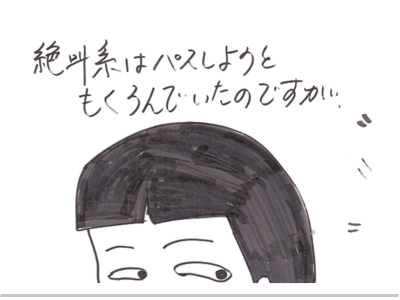 絶叫系はパスしようと
もくろんでいたのですが、